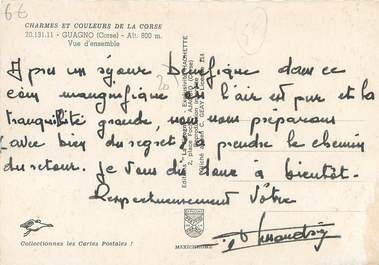 6€
CHARMES ET COULEURS DE LA CORSE
20.131.11 - GUAGNO (Corse) - Alt. 800 m.
Vue d'ensemble
Après un séjour bénéfique dans ce
coin magnifique où l'air est pur et la
tranquilité grande, nous nous préparons
avec bien du regret à prendre le chemin
du retour. Je vous dis donc à bientôt.
Respectueusement Vôtre
Collectionnez les Cartes Postales !
MEXICHROME